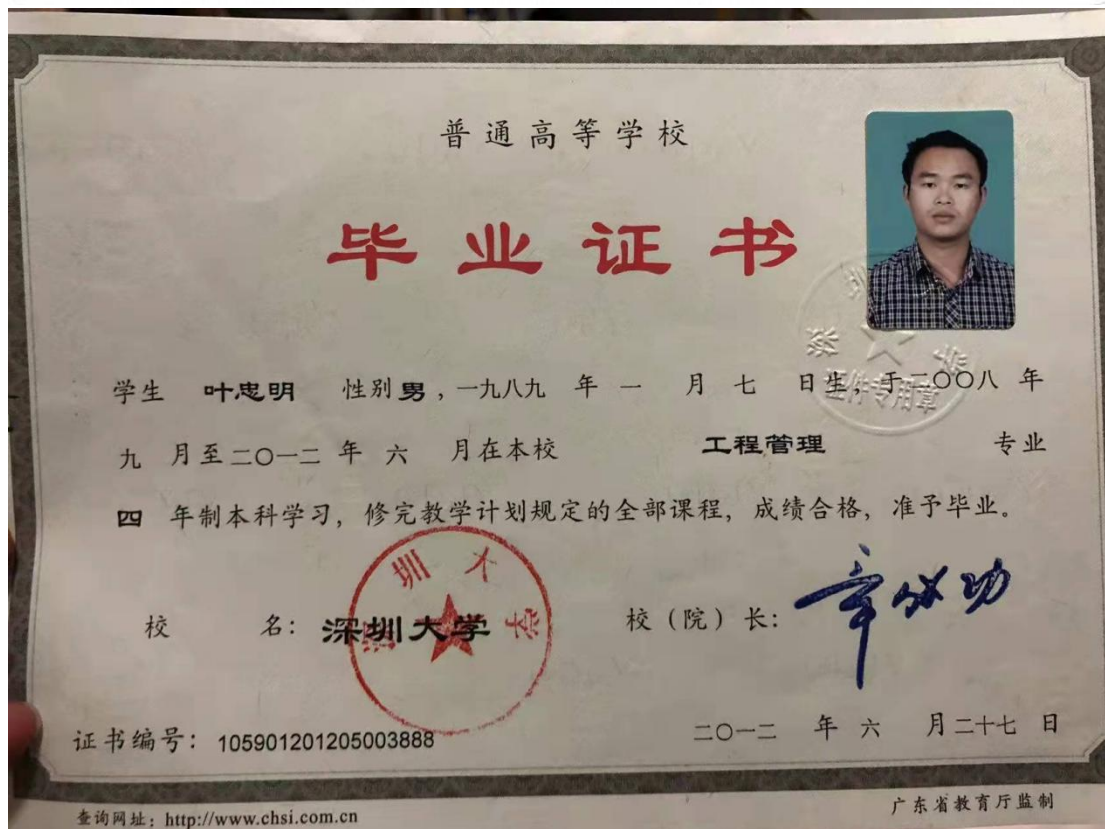 普通高等学校
毕业证书
学生 叶忠明 性别 男，一九八九 年 一 月 七 日生，于二〇〇八 年
九 月至二〇一二 年 六 月在本校 工程管理 专业
四 年制本科学习，修完教学计划规定的全部课程，成绩合格，准予毕业。
校 名：深圳大学 校（院）长：章必功
深圳大学
证件专用章
证书编号：105901201205003888 二〇一二 年 六 月二十七 日
查询网址：http://www.chsi.com.cn 广东省教育厅监制